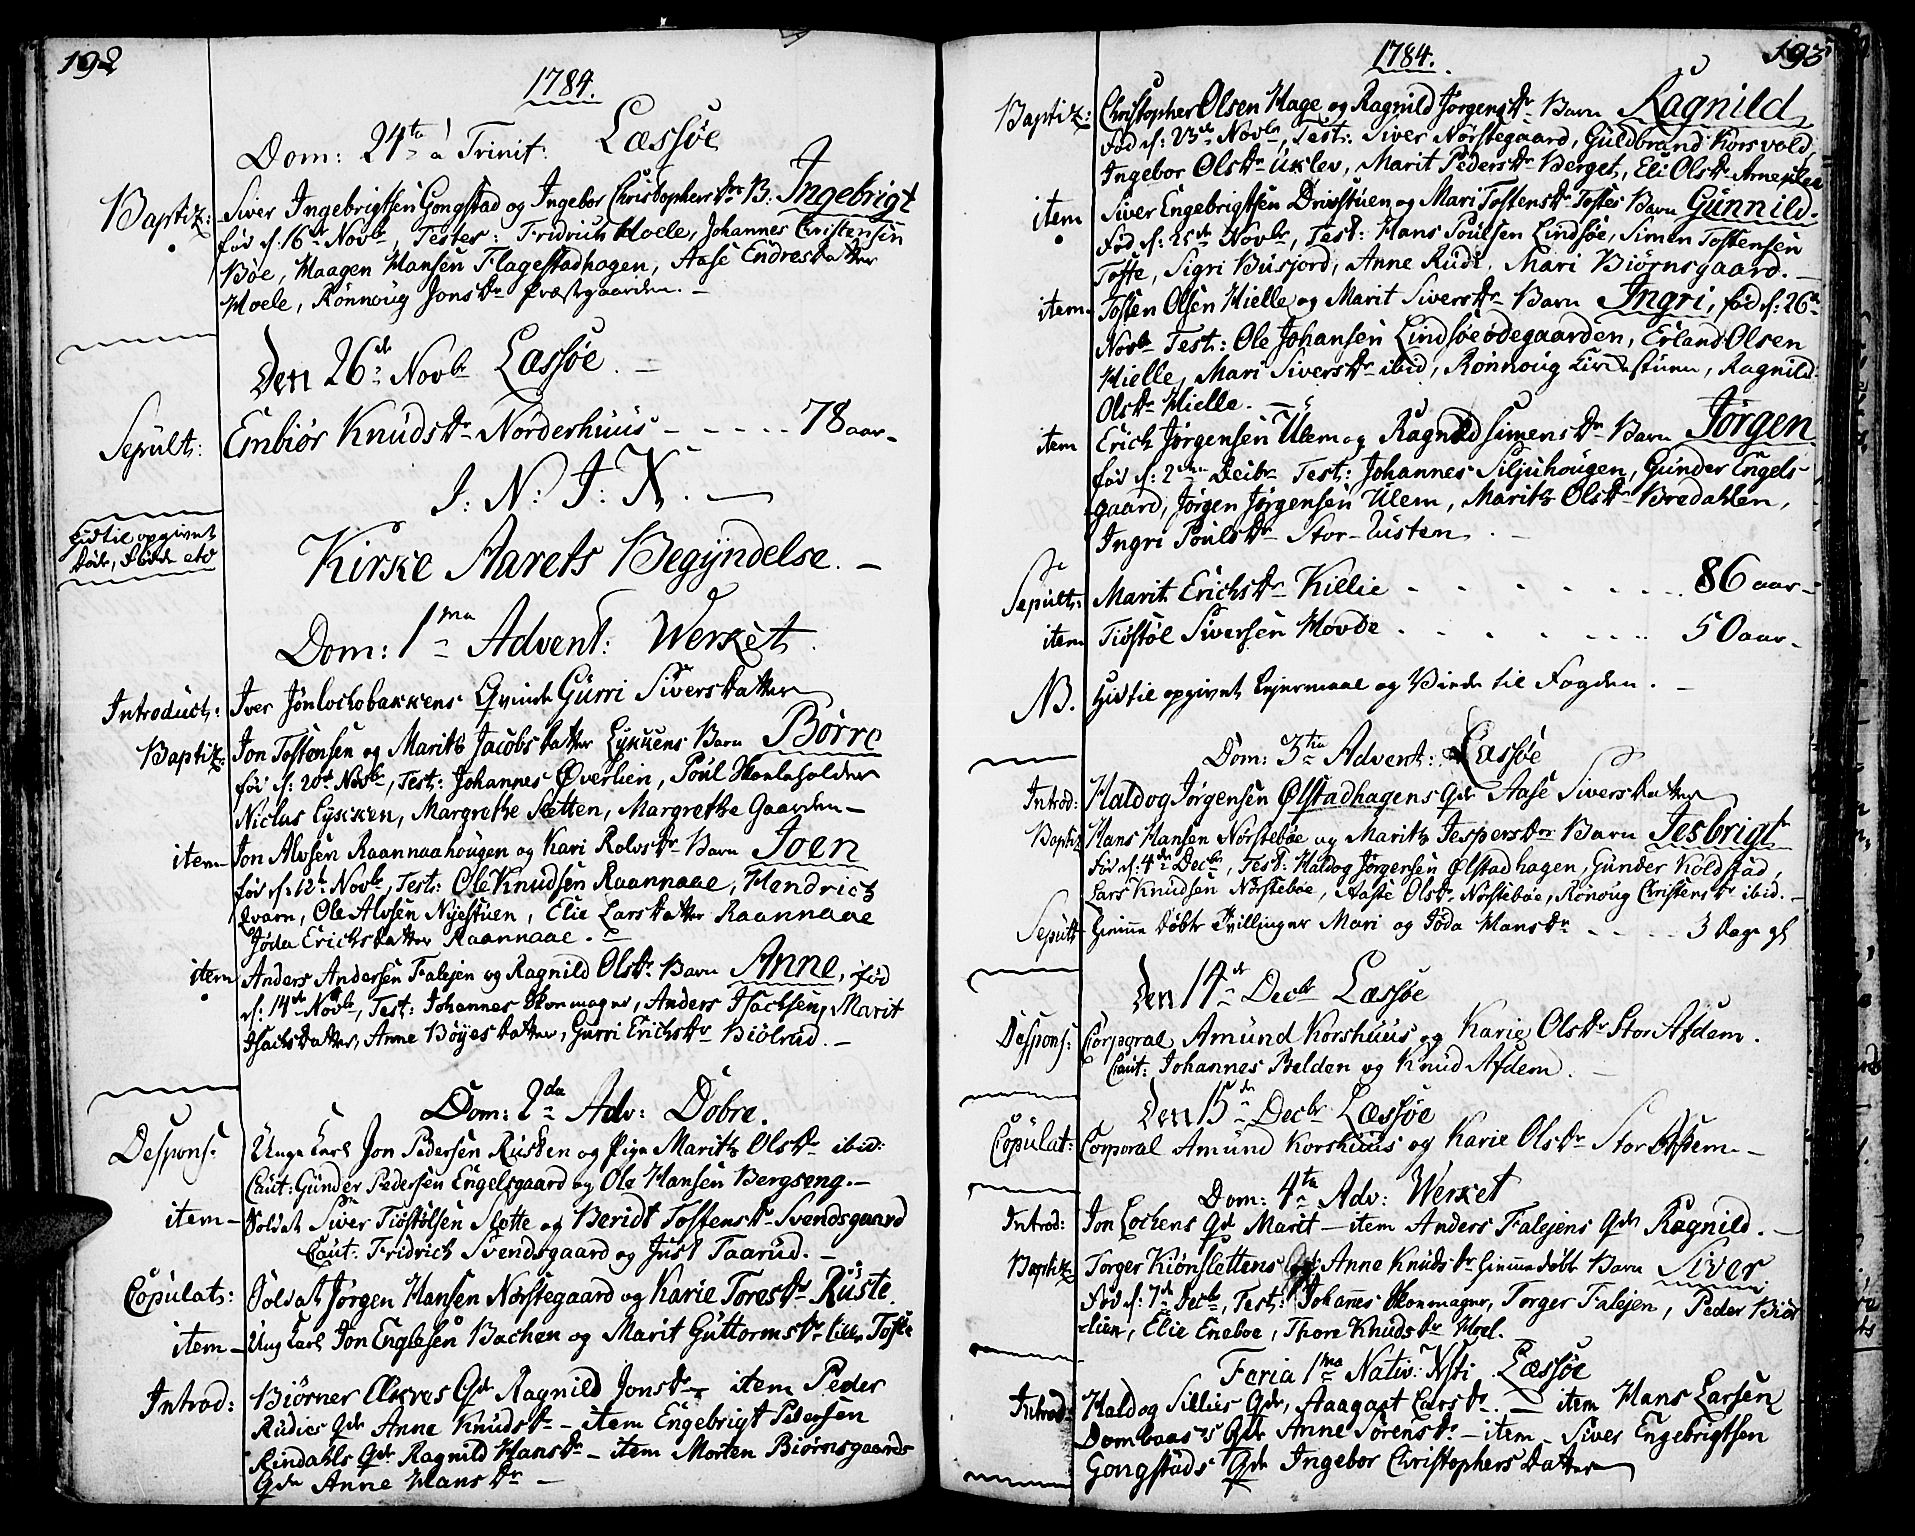 192
1784.
Dom: 24ta à Trinit: Læssøe
Baptiz: Siver Ingebrigtsen Gongstad og Ingebor Christophersdr B. Ingebrigt
fød d: 16de Novbr, Testes: Fridrich Hoele, Johannes Christensen
Bøe, Haagen Hansen Flagestadhagen, Aase Endresdatter
Hoele, Rönnoug Jonsdr Præstgaarden. –
Den 26de Novbr Læssøe. –
Sepult: Embiør Knudsdr Norderhuus – – – – – 78 aar.
J: N: J: X. –
hidtil opgivet
døde, fødde etc
Kirke Aarets Begyndelse. –
Dom: 1ma Advent: Werket.
Introduct: Iver Jönlochobakkens Qvinde Gurri Siversdatter
Baptiz: Jon Tostensen og Marith Jacobsdatter Lykkens Barn Börre
fød d: 20de Novbr, Test: Johannes Øverlien, Poul Skoleholder
Niclus Lykken, Margrethe Sletten, Margrethe Gaarden –
item Jon Alvsen Raannaahougen og Kari Rolvsdr Barn Joen
fød d: 12te Novbr, Test: Ole Knudsen Raannaae, Hendrich
Qvarn, Ole Alvsen Nyestuen, Elie Larsdatter Raannaae
Jøda Erichsdatter Raannaae. –
item Anders Andersen Falejen og Ragnild Olsdr Barn Anne, fød
d: 14de Novbr, Test: Johannes Skonmager, Anders Isachsen, Marit
Isachsdatter, Anne Böyesdatter, Gurri Erichsdr Biölrud. –
Dom: 2da Adv: Dobre.
Despons: Unge Karl Jon Pedersen Rusten og Pige Marith Olsdr ibid:
Caut: Gunder Pedersen Engelsgaard og Ole Hansen Bergseng. –
item – Soldat Siver Tiostolsen Slette og Beridt Tostensdr Svendsgaard
Caut: Fridrich Svendsgaard og Just Taarud. –
Copulat: Soldat Jørgen Hansen Norstegaard og Karie Toresdr Rüste
item – Ung Karl Jon Englesen Bachen og Marit Guttormsdr lille Tofte
Introd: Biørner Elkres Qde Ragnild Jonsdr – item Peder
Rudies Qde Anne Knudsdr – item Engebrigt Pedersen
Rindahls Qde Ragnild Hansdr – item Morten Biørnsgaards
Qde Anne Hansdr –
193
1784.
Baptiz: Christopher Olsen Hage og Ragnild Jørgensdr Barn Ragnild
fød d: 23de Novbr, Test: Siver Nørstegaard, Guldbrand Korsvold,
Ingebor Olsdr Uxlev, Marit Pedersdr Berget, Eli Olsdr
item Siver Engebrigtsen Drivstuen og Mari Tostensdr Toftes Barn Gunnild.
Fød d: 25de Novbr, Test: Hans Poulsen Lindsøe, Simen Tostensen
Tofte, Sigri Busjord, Anne Rudi, Mari Biörnsgaard. –
item – Tosten Olsen Hielle og Marit Siversdr Barn Ingri, fød d: 26de
Novbr Test: Ole Johansen Lindsøeødegaarden, Erland Olsen
Hielle, Mari Siversdr ibid, Rönnoug Lindstuen, Ragnild
Olsdr Hielle. –
item Erich Jørgensen Ulem og Ragnild Simensdr Barn Jörgen
fød d: 2den Decbr Test: Johannes Siljuhougen, Gunder Engels-
gaard, Jørgen Jørgensen Ulem, Marith Olsdr Bredahlen,
Ingri Poulsdr Stor-Rusten. –
Sepult: Marit Erichsdr Killie – – – – – – 86 aar –
item Tiostøl Siversen Hovde – – – – – – 50 aar –
NB. hidtil opgivet Lejermaal og Vinde til Fogden. –
Dom: 3tia Advent: Læssøe
Introd: Haldog Jørgensen Ølstadhagens Qde Aase Siversdatter
Baptiz Hans Hansen Nörstebøe og Marith Jespersdr Barn Jesbrigt
fød d: 4de Decbr, Test: Haldog Jørgensen Ølstadhagen, Gunder Koldstad,
Lars Knudsen Nørstebøe, Aaste Olsdr Nørstebøe, Rönoug Christensdr ibid. –
Sepult – hjemme døbte Tvillinger Mari og Jøda Hansdr – – – – 3 dage gl
Den 14de Decbr Læssøe
Despons: Corporal Amund Korshuus og Karie Olsdr Stor Afdem.
Caut: Johannes Belden og Knud Afdem. –
Den 15de Decbr Læssøe
Copulat: Corporal Amund Korshuus og Karie Olsdr Stor Afdem –
Dom: 4ta Adv: Werket
Introd: Jon Lochens Qde Marit – item Anders Falejens Qde Ragnild. –
Baptiz Torger Kiönslettens og Anne Knudsdr hjemmedøbt Barn Siver
Fød d: 7de Decbr, Test: Johannes Skonmager, Torger Falejen, Peder Biör
lien, Elie Eneboe, Thore Knudsdr Hoel.
Feria 1ma Nativ: Xsti. Læssøe
Introd: Haldog Sillies Qde, Aaagaat Larsdr. – item Hans Larsen
Dombaas's Qde Anne Sörensdr – item – Siver Engebrigtsen
Gongstads Qde Ingebor Christophersdatter